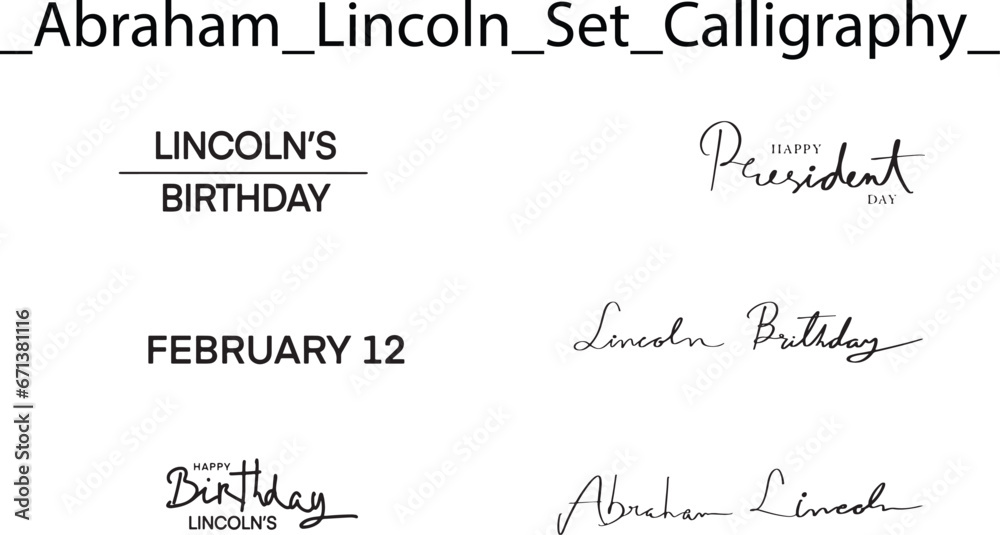 _Abraham_Lincoln_Set_Calligraphy_
LINCOLN'S
BIRTHDAY
HAPPY
President
DAY
FEBRUARY 12
Lincoln Birthday
HAPPY
Birthday
LINCOLN'S
Abraham Lincoln
Adobe Stock | #671381116